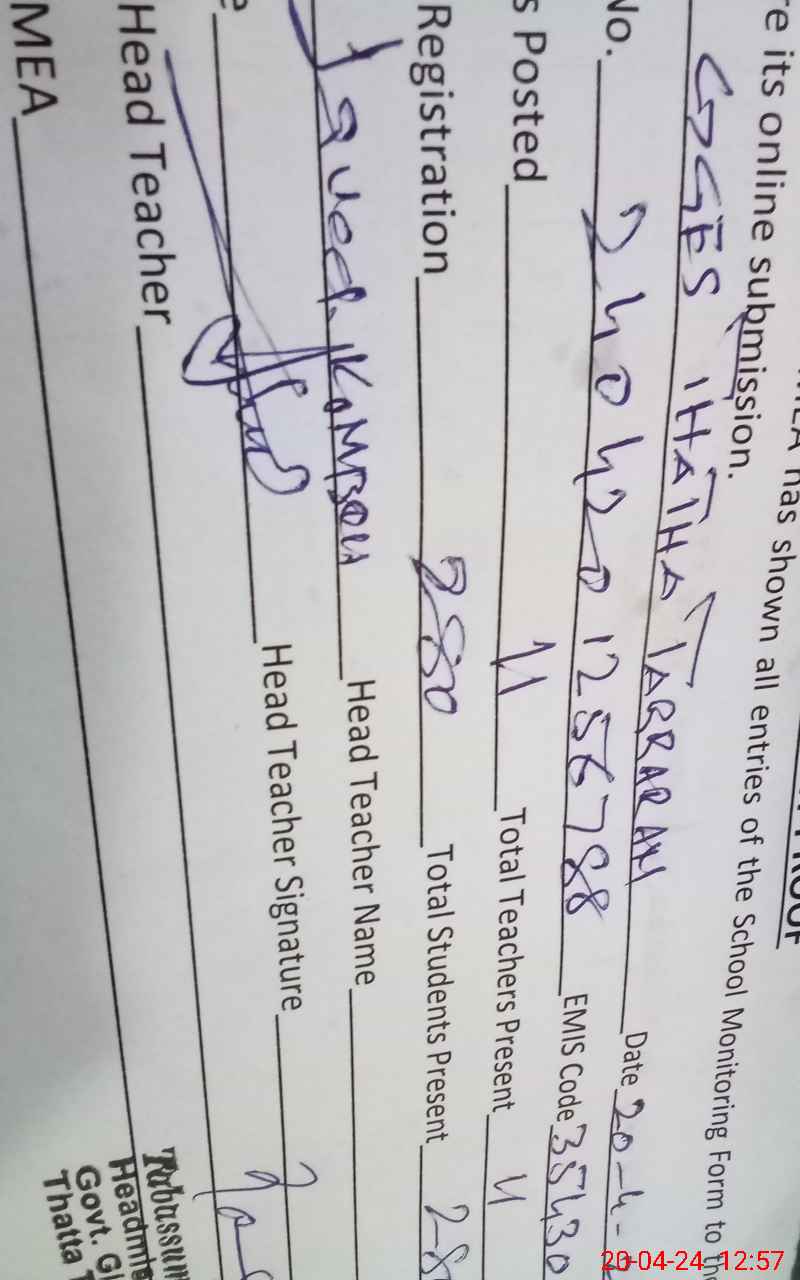 PROOF
MEA has shown all entries of the School Monitoring Form to th
re its online submission.
GGES IHATHA TARRARAN Date 20-4-
No. 2404201256788 EMIS Code 35430
s Posted 11 Total Teachers Present 4
Registration 280 Total Students Present 28
Javed KAMBOH Head Teacher Name
e Head Teacher Signature
Head Teacher
MEA
Tabassum
Headmis
Govt. Gi
Thatta T
20-04-24 12:57